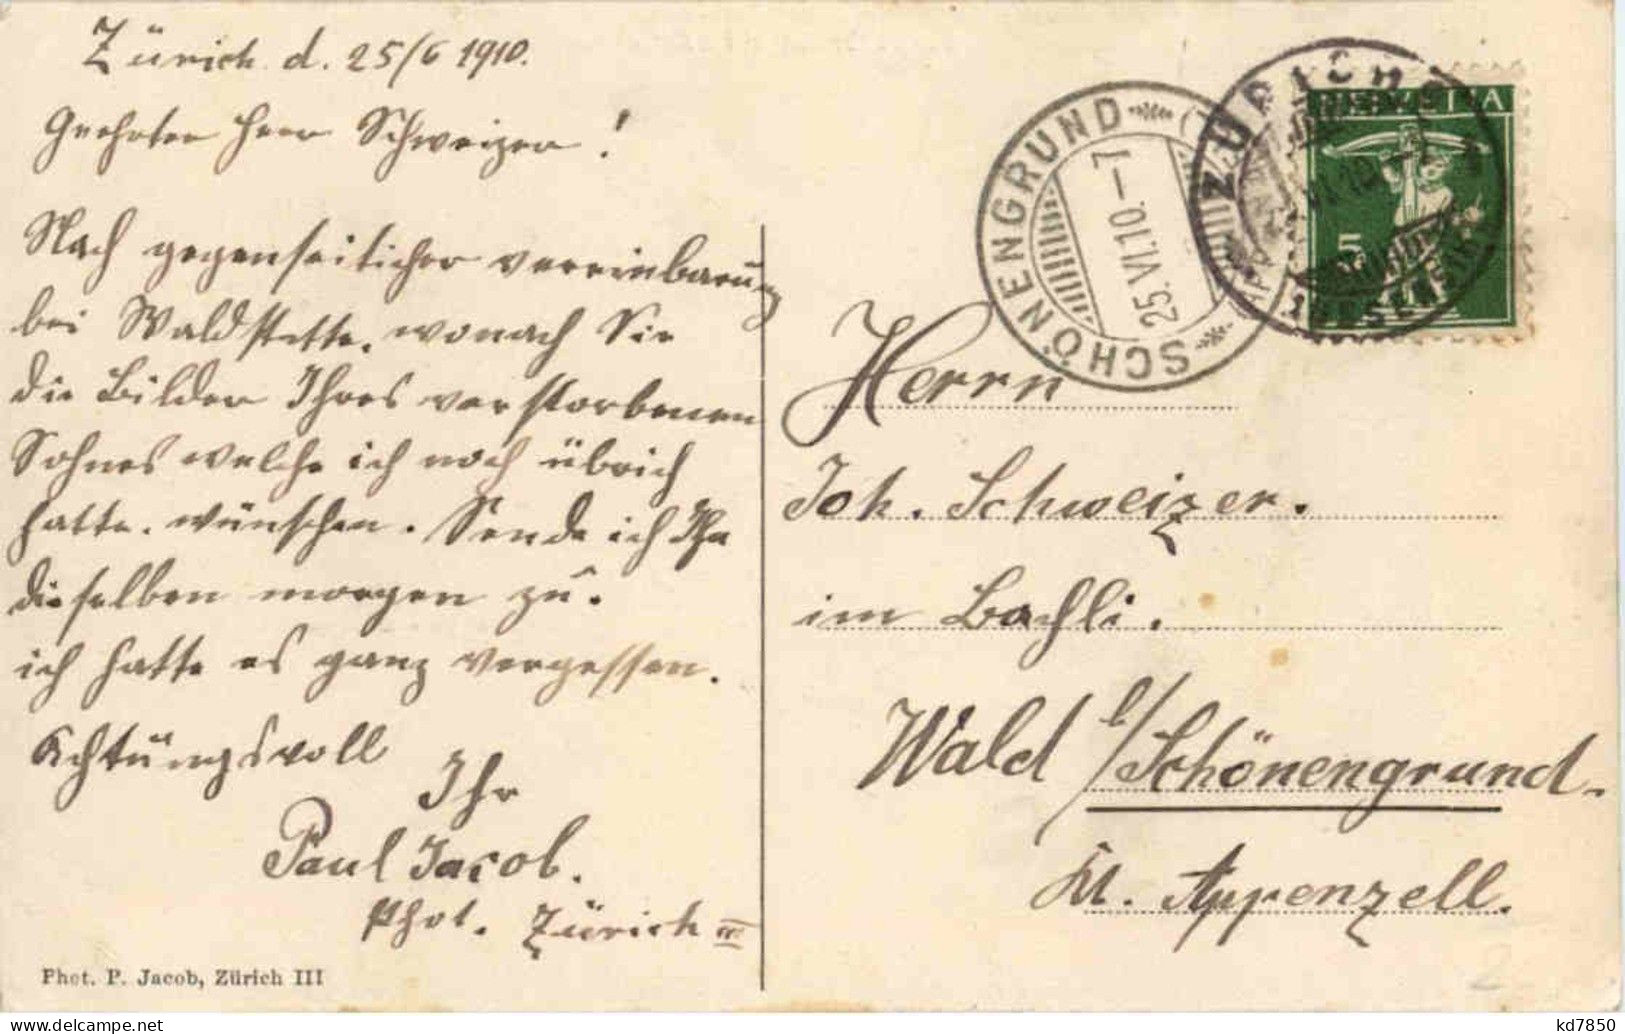 Zürich d. 25/6 1910.
Geehrter Herr Schweizer!
Nach gegenseiticher vereinbarung
bei Waldstette, wonach Sie
die Bilder Ihres verstorbenen
Sohnes welche ich noch übrich
hatte. wünschen. Sende ich Ihn
dieselben morgen zu.
ich hatte es ganz vergessen.
Achtungsvoll
Ihr
Paul Jacob.
Phot. Zürich III
Phot. P. Jacob, Zürich III
SCHÖNENGRUND
25.VI.10.–7
ZÜRICH
HELVETIA
5
Herrn
Joh. Schweizer.
im Bächli.
Wald b/Schönengrund.
Kt. Appenzell.
2
kd7850